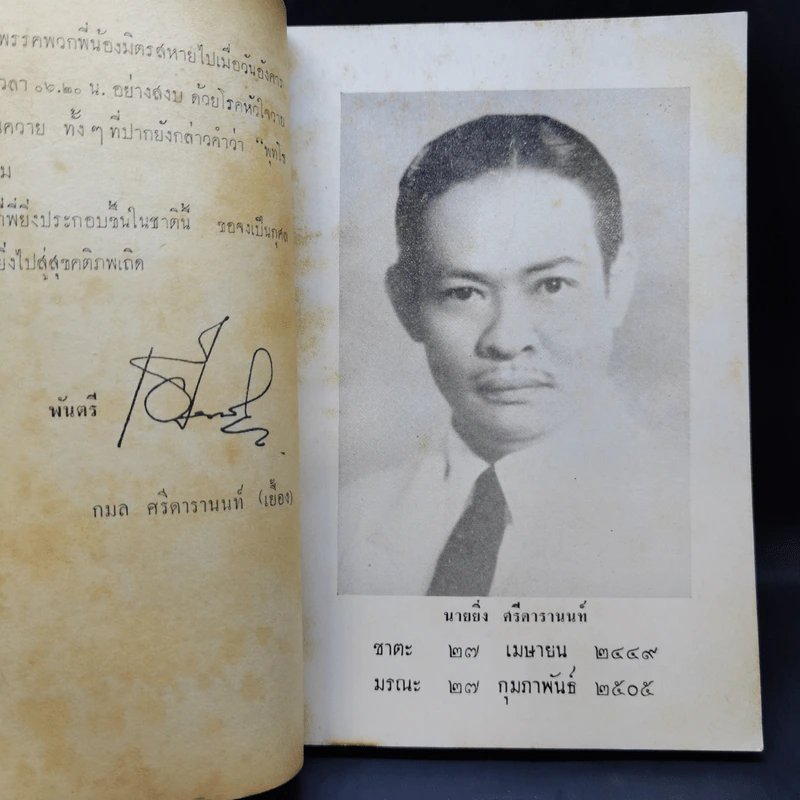 พรรคพวกพี่น้องมิตรสหายไปเมื่อวันอังคาร
เวลา ๐๖.๒๐ น. อย่างสงบ ด้วยโรคหัวใจวาย
ควาย ทั้ง ๆ ที่ปากยังกล่าวคำว่า "พุทโธ
ม
ที่พี่ยิ่งประกอบขึ้นในชาตินี้ ขอจงเป็นกุศล
ยิ่งไปสู่สุขคติภพเถิด
พันตรี
กมล ศรีดารานนท์ (เยื้อง)
นายยิ่ง ศรีดารานนท์
ชาตะ ๒๗ เมษายน ๒๔๔๙
มรณะ ๒๗ กุมภาพันธ์ ๒๕๐๕